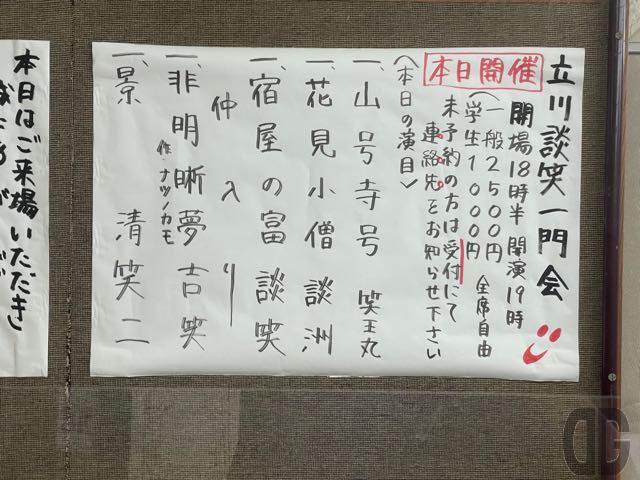 立川談笑一門会
本日開催
開場18時半 開演19時
(一般2500円
学生1000円 全席自由
未予約の方は受付にて
連絡先をお知らせ下さい
〈本日の演目〉
一、山号寺号 笑王丸
一、花見小僧 談洲
一、宿屋の富 談笑
仲入り
一、非明晰夢 吉笑
作・ナツノカモ
一、景清 笑二
本日はご来場いただき
DG